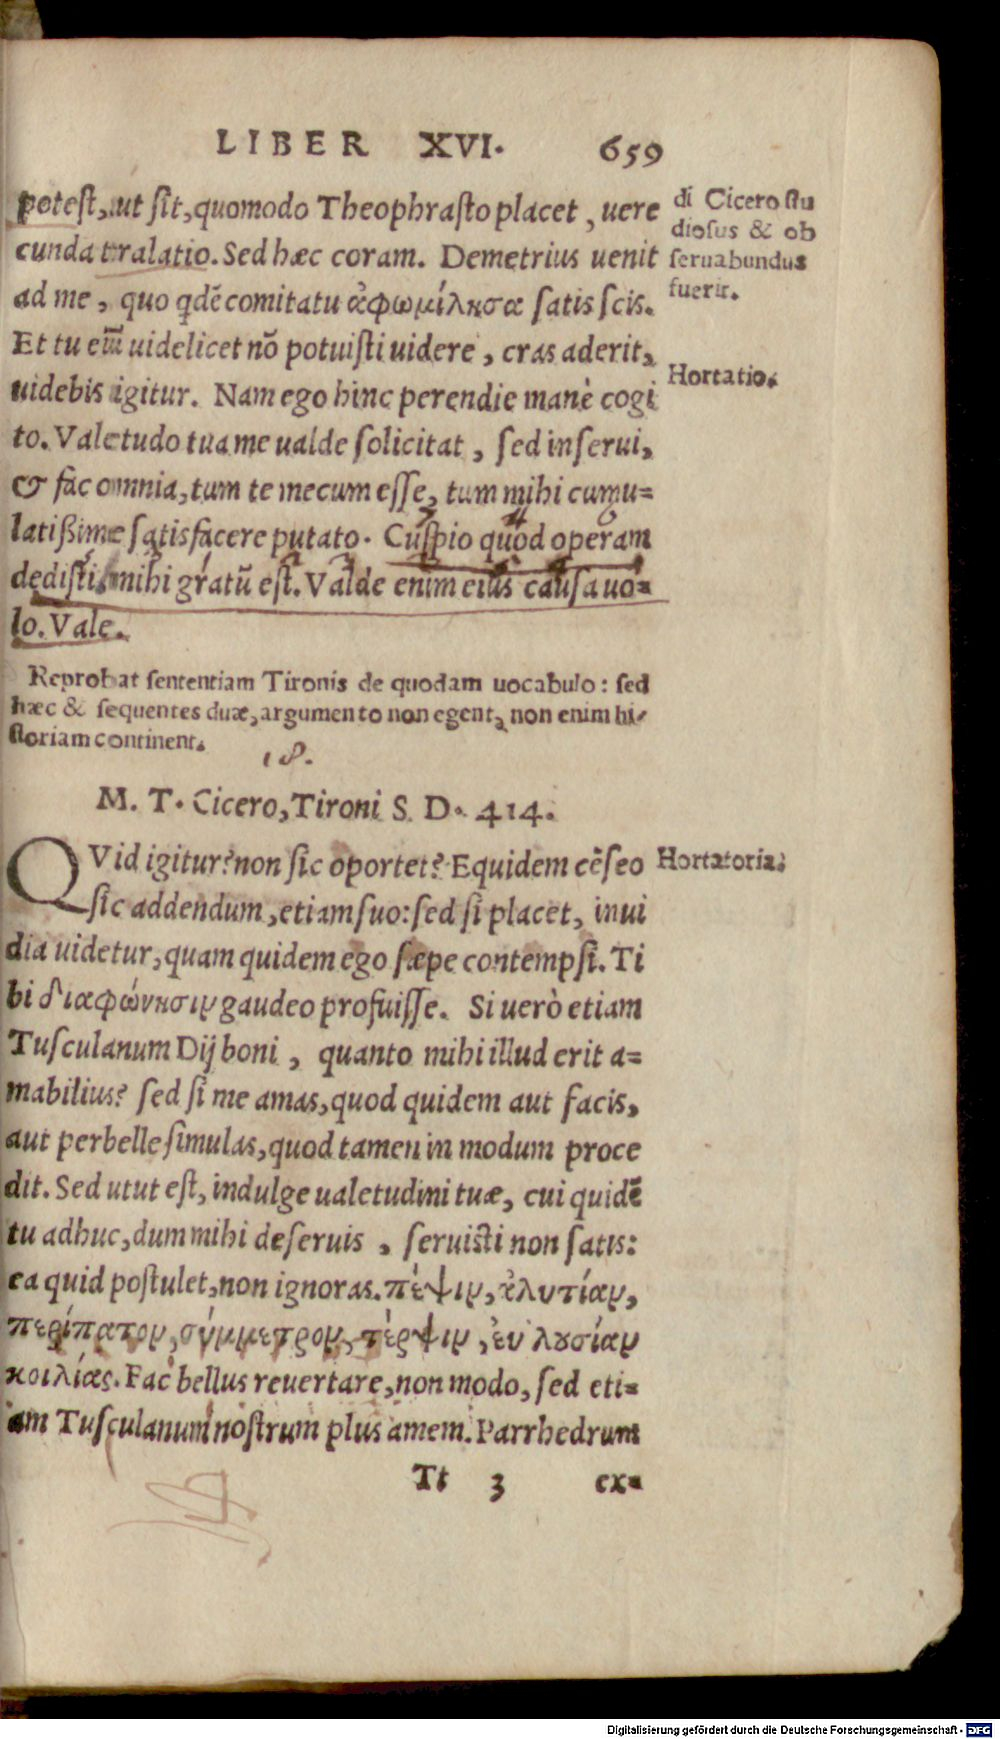 LIBER XVI. 659
potest, ut sit, quomodo Theophrasto placet, uere
cunda tralatio. Sed hæc coram. Demetrius uenit
ad me, quo qdē comitatu ἀφωμίλησα satis scis.
Et tu eū uidelicet nō potuisti uidere, cras aderit,
uidebis igitur. Nam ego hinc perendie manè cogi
to. Valetudo tua me ualde solicitat, sed inserui,
& fac omnia, tum te mecum esse, tum mihi cumu=
latißime satisfacere putato. Cuspio quod operam
dedisti, mihi gratū est. Valde enim eius causa uo=
lo. Vale.
di Cicero stu
diosus & ob
seruabundus
fuerit.
Hortatio.
Reprobat sententiam Tironis de quodam uocabulo: sed
hæc & sequentes duæ, argumento non egent, non enim hi-
storiam continent.
18.
M. T. Cicero, Tironi S. D. 414.
QVid igitur? non sic oportet? Equidem cēseo
sic addendum, etiam suo: sed si placet, inui
dia uidetur, quam quidem ego sæpe contempsi. Ti
bi διαφώνησιν gaudeo profuisse. Si uerò etiam
Tusculanum Dij boni, quanto mihi illud erit a=
mabilius? sed si me amas, quod quidem aut facis,
aut perbelle simulas, quod tamen in modum proce
dit. Sed utut est, indulge ualetudini tuæ, cui quidē
tu adhuc, dum mihi deseruis, seruisti non satis:
ea quid postulet, non ignoras. πέψιν, ἀλυτίαν,
περίπατον, σύμμετρον, τέρψιν, ἐυ λυσίαν
κοιλίας. Fac bellus reuertare, non modo, sed eti=
am Tusculanum nostrum plus amem. Parrhedrum
Hortatoria.
Tt 3 ex=
Digitalisierung gefördert durch die Deutsche Forschungsgemeinschaft - DFG